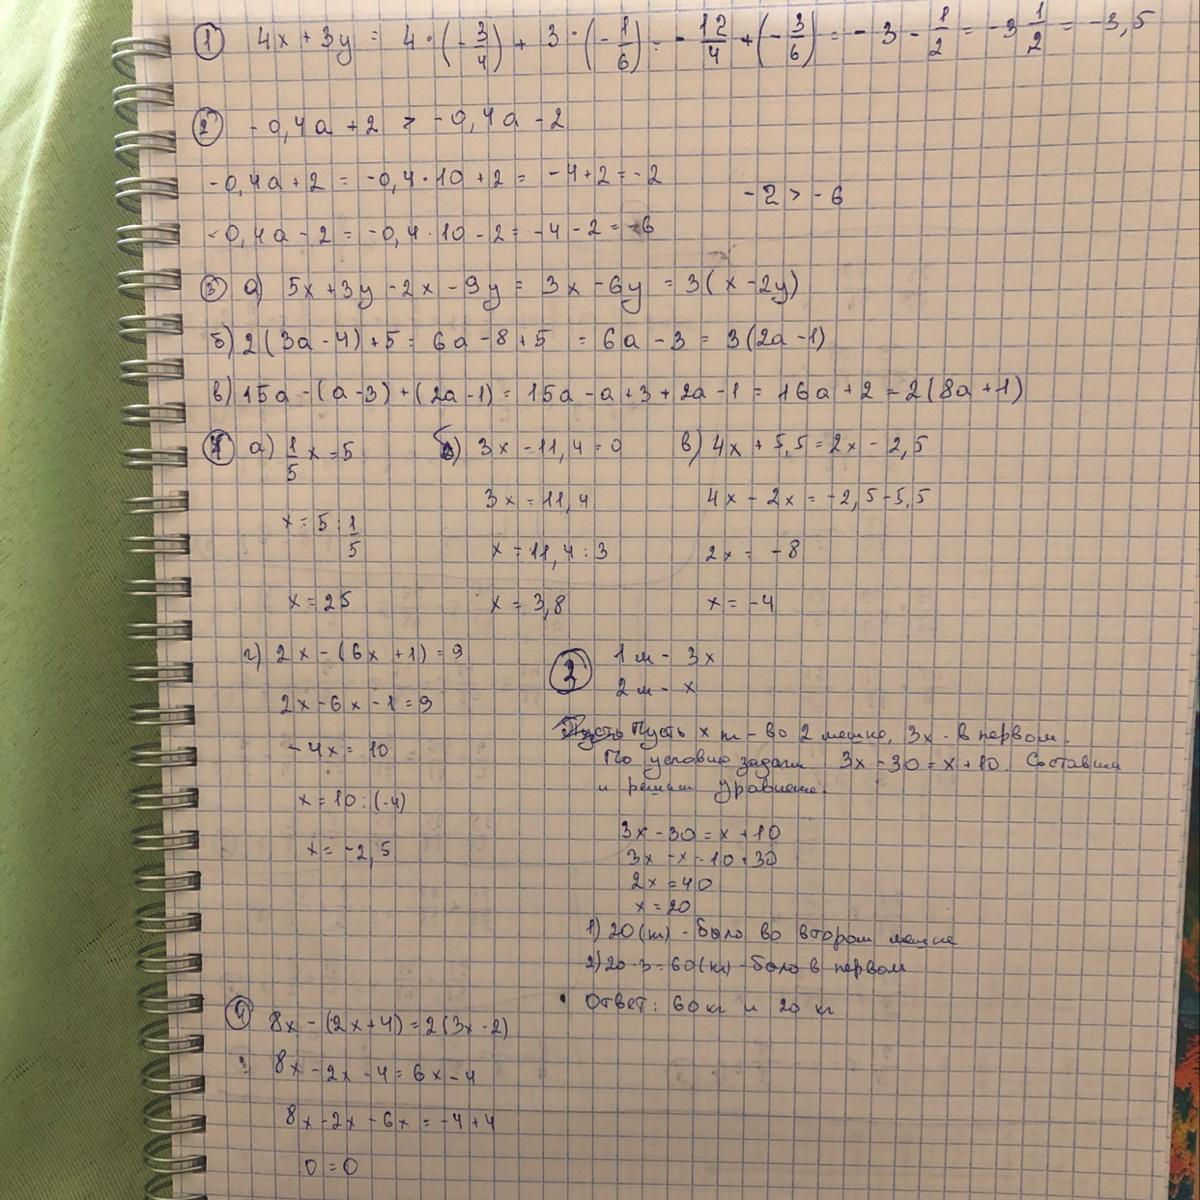 ① 4x + 3y = 4·(-3/4) + 3·(-1/6) = -12/4 + (-3/6) = -3 - 1/2 = -3 1/2 = -3,5
② -0,4a + 2 > -0,4a - 2
-0,4a + 2 = -0,4·10 + 2 = -4 + 2 = -2
-2 > -6
-0,4a - 2 = -0,4·10 - 2 = -4 - 2 = -6
③ а) 5x + 3y - 2x - 9y = 3x - 6y = 3(x - 2y)
б) 2(3a - 4) + 5 = 6a - 8 + 5 = 6a - 3 = 3(2a - 1)
в) 15a - (a - 3) + (2a - 1) = 15a - a + 3 + 2a - 1 = 16a + 2 = 2(8a + 1)
а) 1/5 x = 5
x = 5 : 1/5
x = 25
б) 3x - 11,4 = 0
3x = 11,4
x = 11,4 : 3
x = 3,8
в) 4x + 5,5 = 2x - 2,5
4x - 2x = -2,5 - 5,5
2x = -8
x = -4
г) 2x - (6x + 1) = 9
2x - 6x - 1 = 9
-4x = 10
x = 10 : (-4)
x = -2,5
1 м - 3x
2 м - x
Пусть x - во 2 мешке, 3x - в первом.
По условию задачи 3x - 30 = x + 10. Составим
и решим уравнение.
3x - 30 = x + 10
3x - x = 10 + 30
2x = 40
x = 20
1) 20 (кг) - было во втором мешке
2) 20·3 = 60 (кг) - было в первом
Ответ: 60 кг и 20 кг
8x - (2x + 4) = 2(3x - 2)
8x - 2x - 4 = 6x - 4
8x - 2x - 6x = -4 + 4
0 = 0